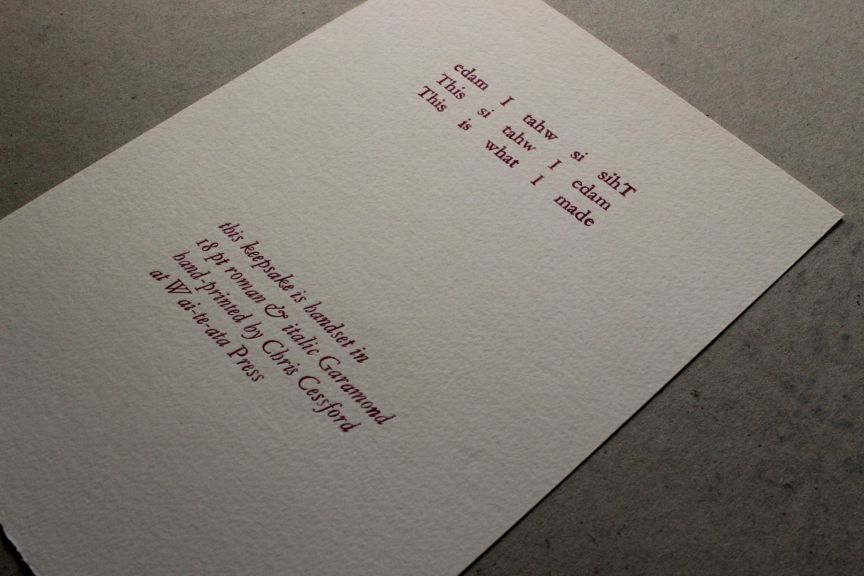 edam I tahw si sihT
This si tahw I edam
This is what I made
this keepsake is handset in
18 pt roman & italic Garamond
hand-printed by Chris Cessford
at Wai-te-ata Press